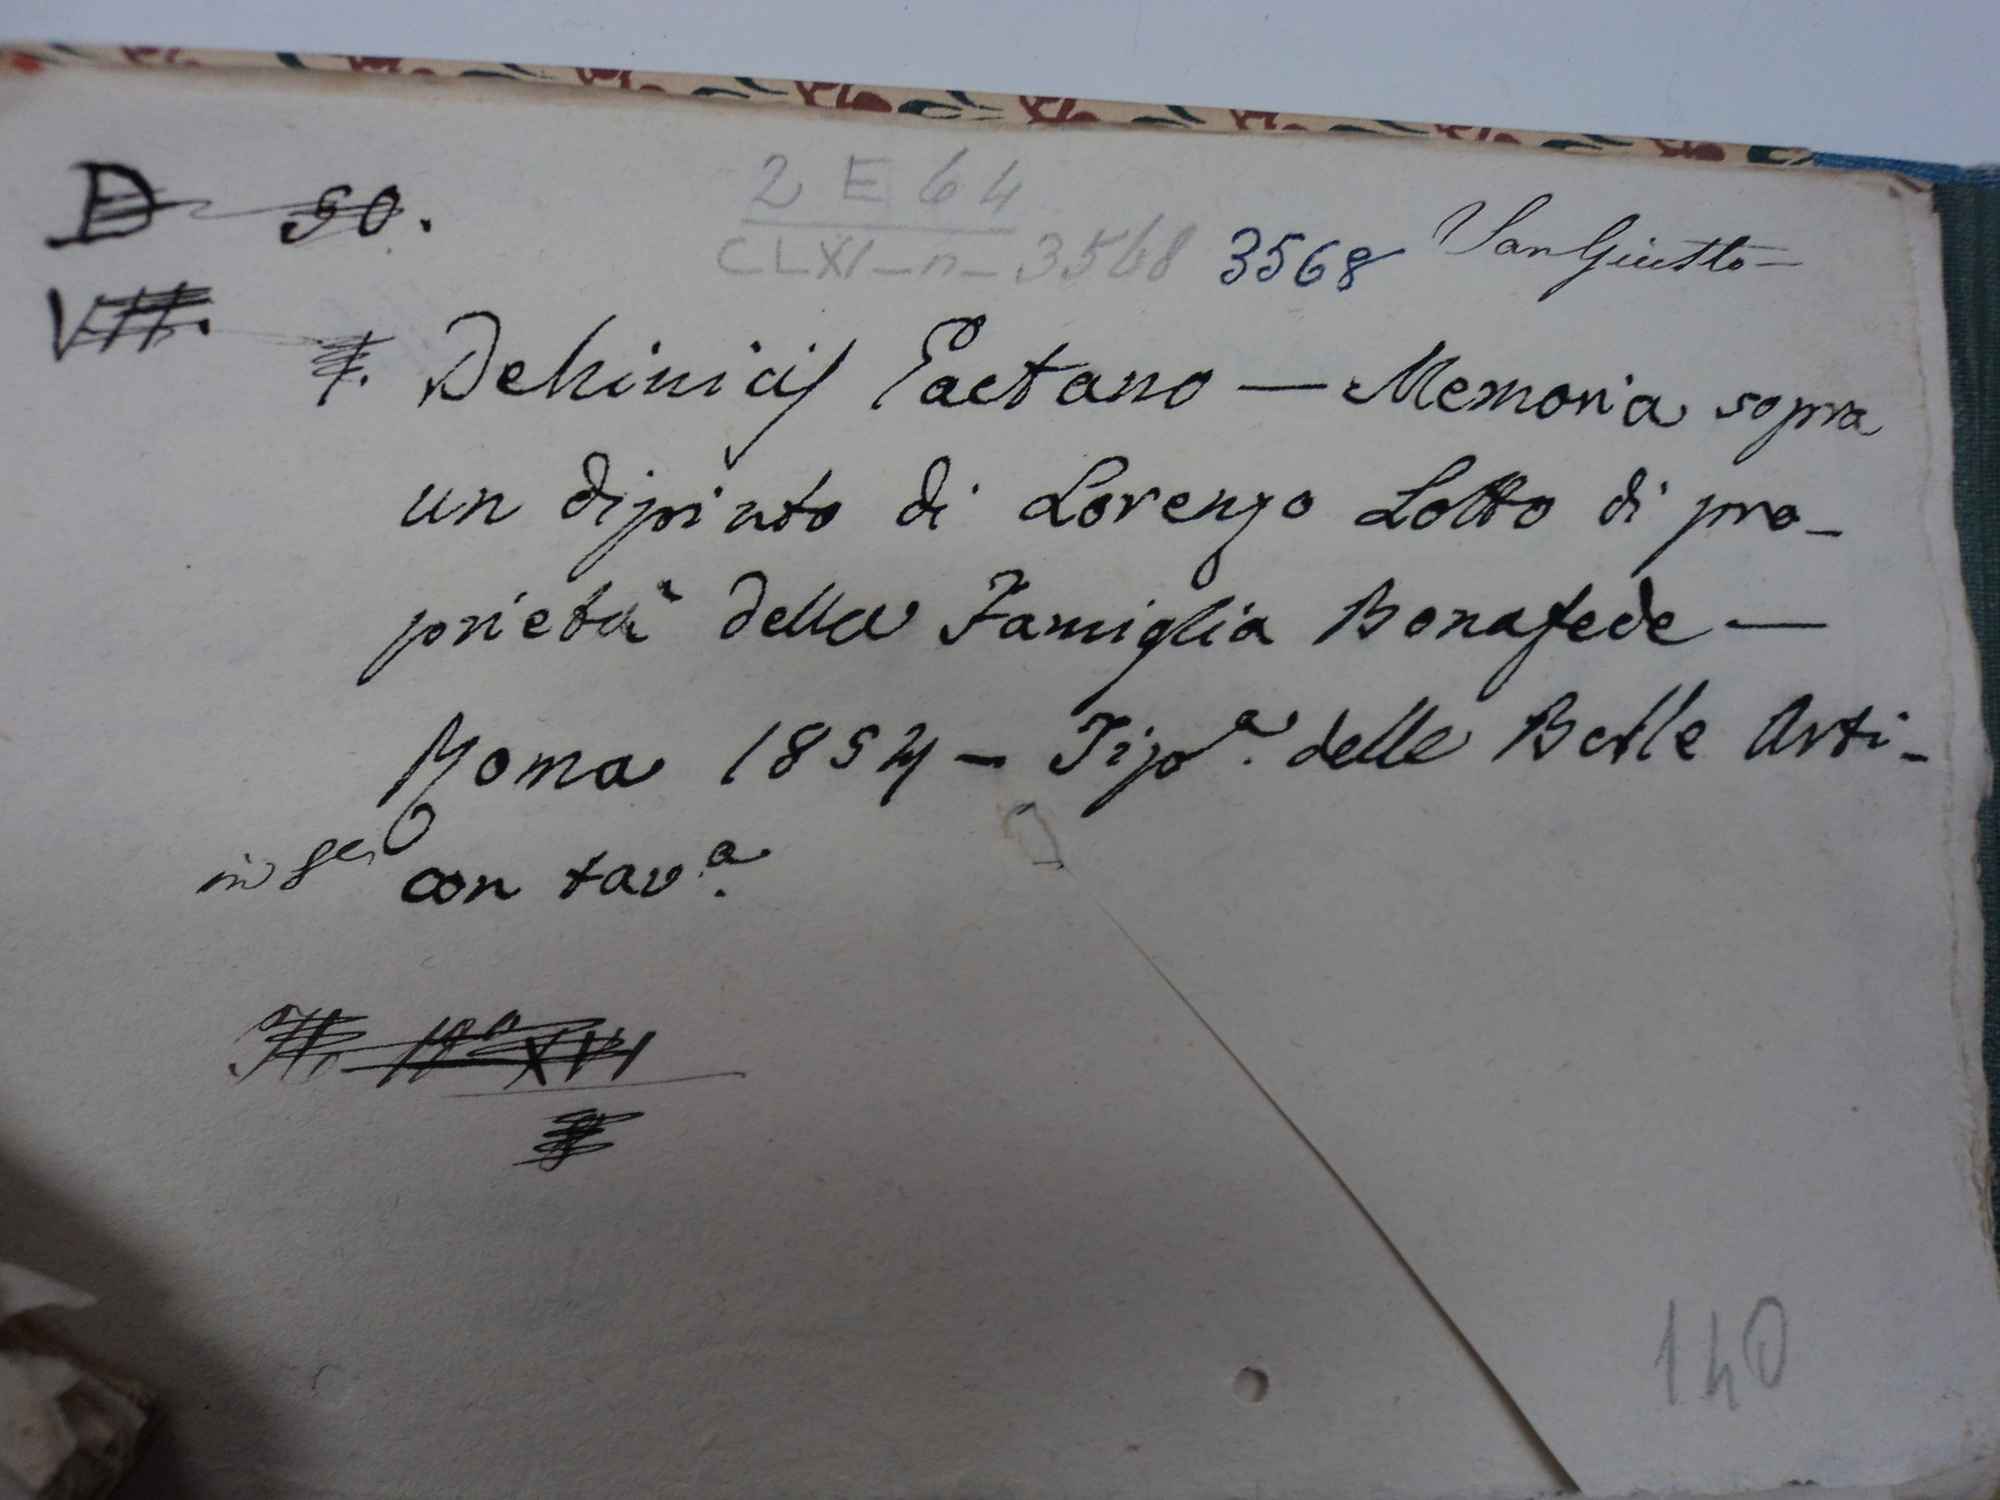 D 50.
2 E 64
CLXI-n-3568 3568 San Giusto-
VII.
Gaetano — Memoria sopra
un dipinto di Lorenzo Lotto di pro-
prietà della Famiglia Bonafede —
Roma 1854 - Tipª. delle Belle Arti-
in 8º con tavª.
XVI
140